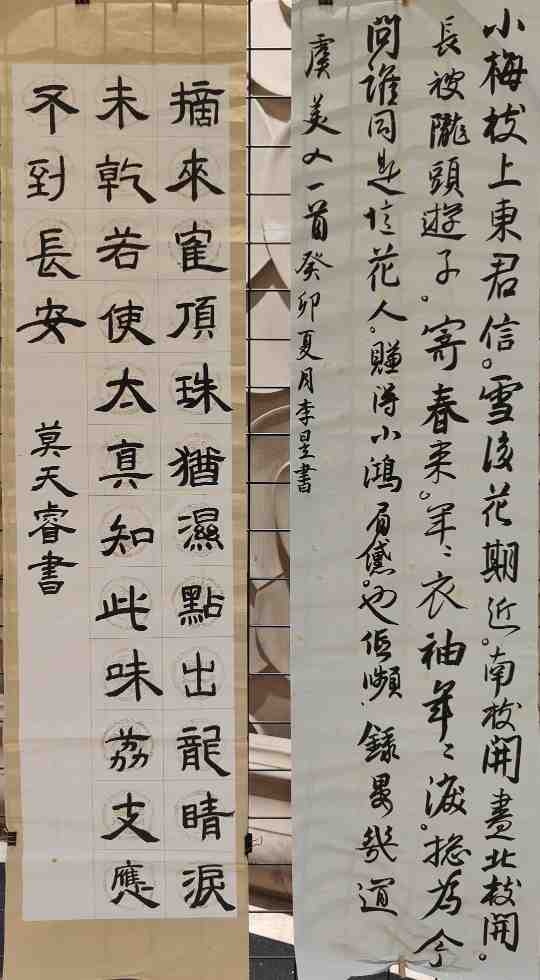 小梅枝上東君信。雪後花期近。南枝開盡北枝開。
長被隴頭遊子。寄春來。年々衣袖年々淚。總為今
問誰同是憶花人。賺得小鴻眉黛。也低顰錄晏幾道
虞美人一首癸卯夏月李書
摘來寉頂珠猶濕點出龍睛淚
未乾若使太真知此味荔支應
不到長安
莫天睿書